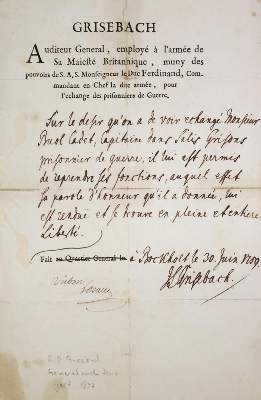 GRISEBACH
Auditeur General, employé à l'armée de
Sa Majesté Britannique, muny des
pouvoirs de S. A. S. Monseigneur le Duc Ferdinand, Com-
mandant en Chef la dite armée, pour
l'echange des prisonniers de Guerre.
Sur le desir qu'on a de voir echangé Monsieur
Buol Cadet, Capitaine dans Salis Grisons
prisonnier de guerre, il lui est permis
de reprendre ses fonctions, auquel effet
sa parole d'honneur qu'il a donnée, lui
est rendue et se trouve en pleine et entiere
Liberté.
Fait au Quartier General à Bockholt le 30. Juin
Grisebach.